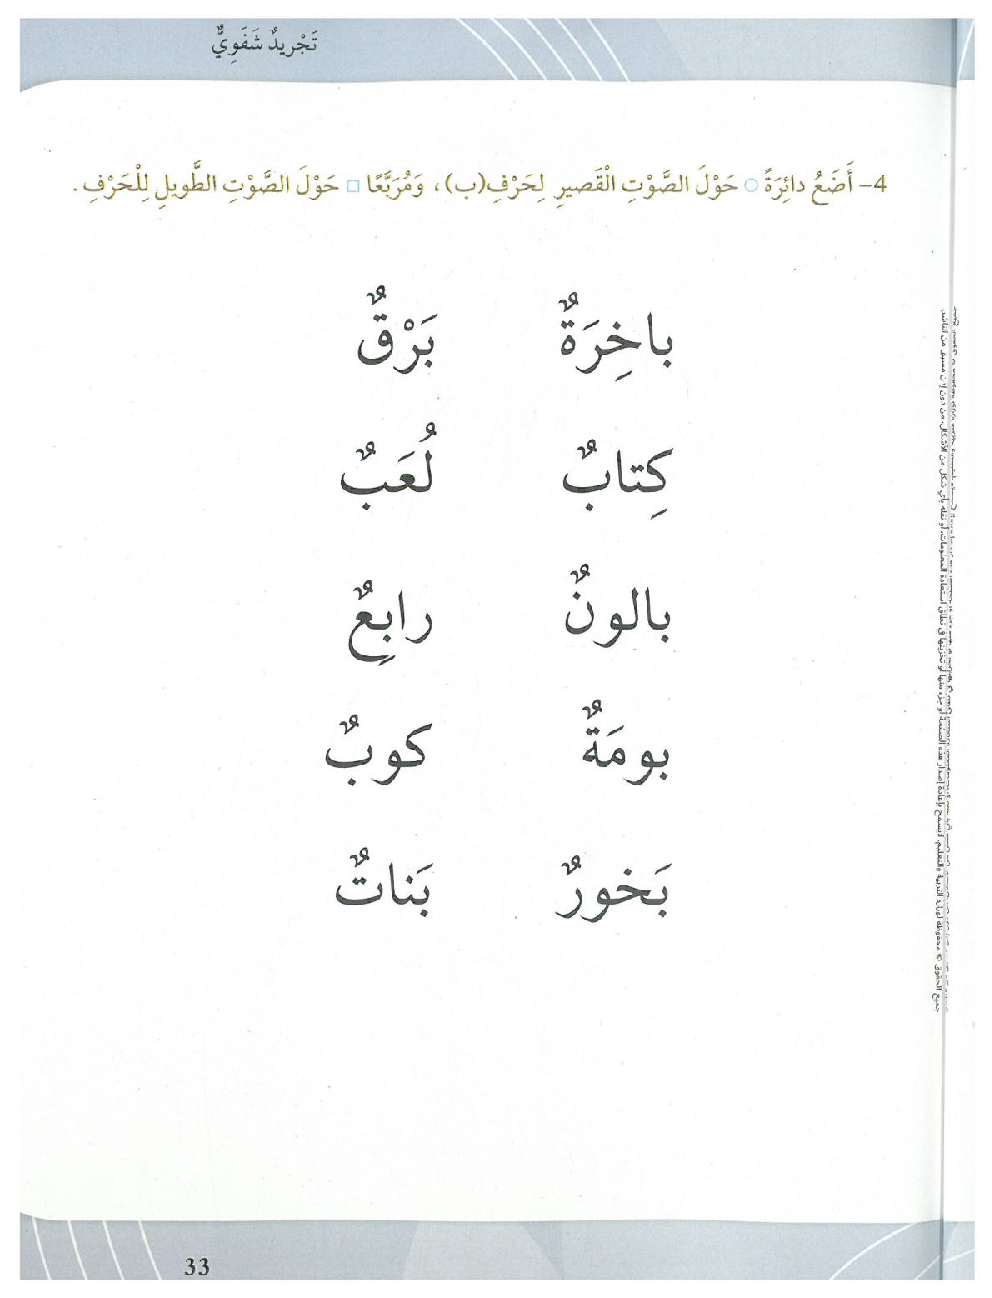 تَجْريدٌ شَفَوِيٌّ
4- أَضَعُ دائِرَةً ○ حَوْلَ الصَّوْتِ الْقَصيرِ لِحَرْفِ(ب)، وَمُرَبَّعًا □ حَوْلَ الصَّوْتِ الطَّويلِ لِلْحَرْفِ.
باخِرَةٌ بَرْقٌ
كِتابٌ لُعَبٌ
بالونٌ رابِعٌ
بومَةٌ كوبٌ
بَخورٌ بَناتٌ
33